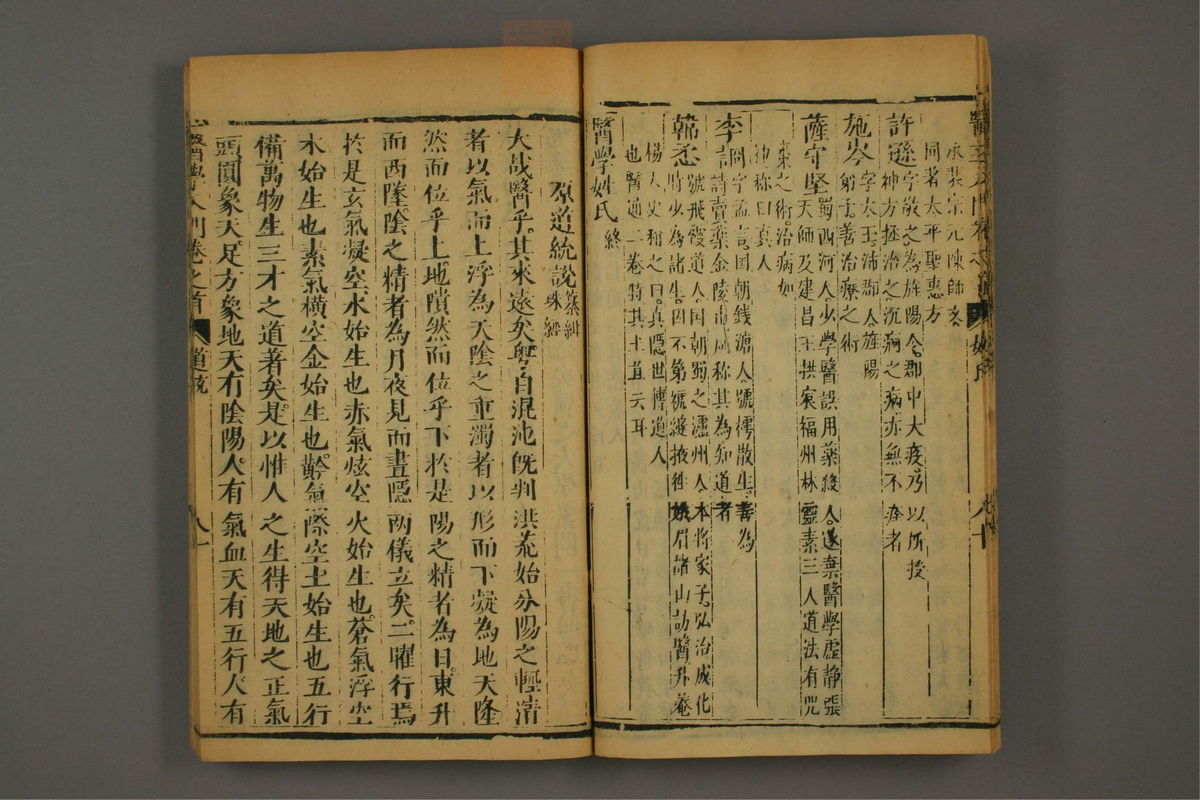 承裴宗元陳師文
同著太平聖惠方
許遜字敬之為旌陽令郡中大疫乃以所授
神方拯治之沉痾之病亦無不痊者
施岑字太玉沛郡人旌陽
弟子善治療之術
薩守堅蜀西河人少學醫誤用藥殺人遂棄醫學虛靜張
天師及建昌王拱宸福州林靈素三人道法有咒
棗之術治病如
神称曰真人
李言詩賣藥金陵市咸称其為知道者
同字孟言國朝錢塘人號樗散生善為
韓𢘅號飛霞道人國朝蜀之瀘州人本將家子弘治成化
時少為諸生因不第褫縫掖徃峩眉諸山訪醫升菴
楊太史稱之曰真隱世傳道人
也醫通二卷特其土苴云耳
醫學姓氏 終
原道統說 纂緝
大哉醫乎其來遠矣粵自混沌旣判洪荒始分陽之輕清
者以氣而上浮為天陰之重濁者以形而下凝為地天隆
然而位乎上地隤然而位乎下於是陽之精者為日東升
而西墜陰之精者為月夜見而晝隱兩儀立矣二曜行焉
於是玄氣凝空水始生也赤氣炫空火始生也蒼氣浮空
木始生也素氣橫空金始生也黅氣際空土始生也五行
備萬物生三才之道著矣是以惟人之生得天地之正氣
頭圓象天足方象地天有陰陽人有氣血天有五行人有
醫學入門卷之首 道統 八一